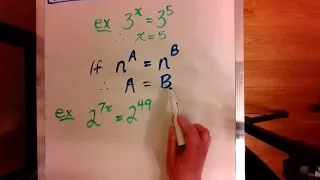 ex 3ˣ = 3⁵
∴ x = 5
If nᴬ = nᴮ
∴ A = B
ex 2⁷ˣ = 2⁴⁹